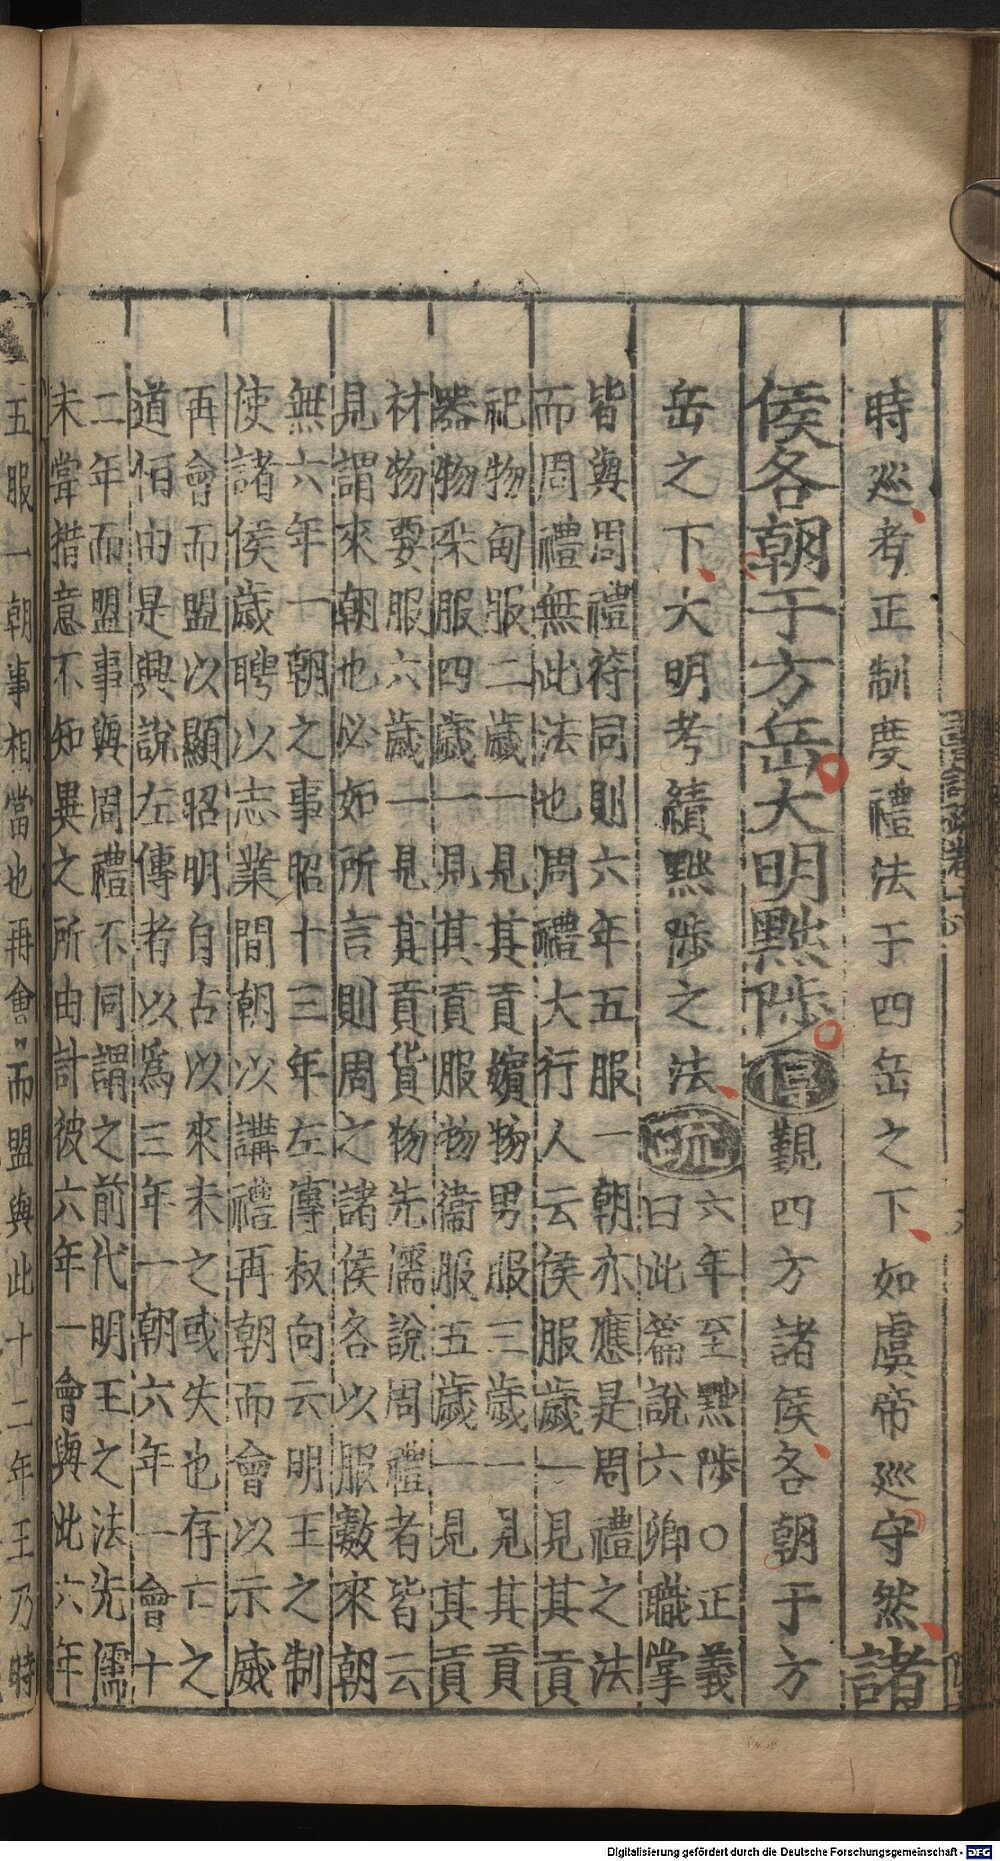 時巡考正制度禮法于四岳之下如虞帝巡守然諸
侯各朝于方岳大明黜陟傳覲四方諸侯各朝于方
岳之下大明考績黜陟之法疏
六年至黜陟○正義
曰此篇說六卿職掌
皆與周禮符同則六年五服一朝亦應是周禮之法
而周禮無此法也周禮大行人云侯服歲一見其貢
祀物甸服二歲一見其貢嬪物男服三歲一見其貢
器物采服四歲一見其貢服物衞服五歲一見其貢
材物要服六歲一見其貢貨物先儒說周禮者皆云
見謂來朝也必如所言則周之諸侯各以服數來朝
無六年一朝之事昭十三年左傳叔向云明王之制
使諸侯歲聘以志業間朝以講禮再朝而會以示威
再會而盟以顯昭明自古以來未之或失也存亡之
道恒由是興說左傳者以爲三年一朝六年一會十
二年而盟事與周禮不同謂之前代明王之法先儒
未嘗措意不知異之所由計彼六年一會與此六年
五服一朝事相當也再會而盟與此十二年王乃時
Digitalisierung gefördert durch die Deutsche Forschungsgemeinschaft - DFG